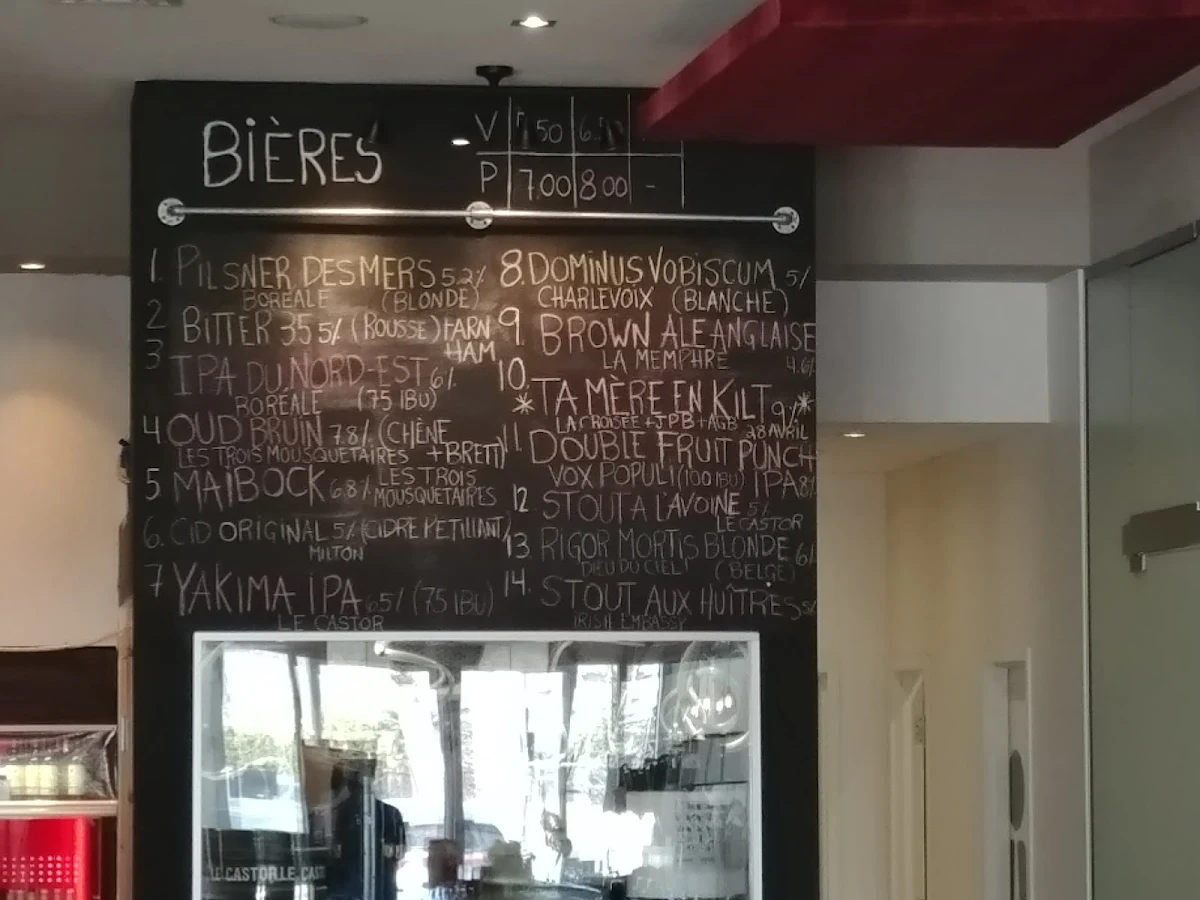 BIÈRES
V 50 6.
P 7.00 8.00 -
1. PILSNER DES MERS 5.2%
BORÉALE (BLONDE)
2 BITTER 35 5% (ROUSSE) FARN
HAM
3 IPA DU NORD-EST 6%
BORÉALE (75 IBU)
4 OUD BRUIN 7.8% (CHÊNE
LES TROIS MOUSQUETAIRES +BRETT)
5 MAIBOCK 6.8% LES TROIS
MOUSQUETAIRES
6. CID ORIGINAL 5% (CIDRE PETILLANT)
MILTON
7 YAKIMA IPA 6.5% (75 IBU)
LE CASTOR
8. DOMINUS VOBISCUM 5%
CHARLEVOIX (BLANCHE)
9 BROWN ALE ANGLAISE
LA MEMPHRÉ 4.6%
10.
* TA MÈRE EN KILT 9% *
LA CROISÉE + JPB + AGB 28 AVRIL
11. DOUBLE FRUIT PUNCH
VOX POPULI (100 IBU) IPA 8%
12 STOUT A L'AVOINE 5%
LE CASTOR
13 RIGOR MORTIS BLONDE 6%
DIEU DU CIEL! (BELGE)
14. STOUT AUX HUÎTRES 5%
IRISH EMBASSY
LE CASTOR LE CAST